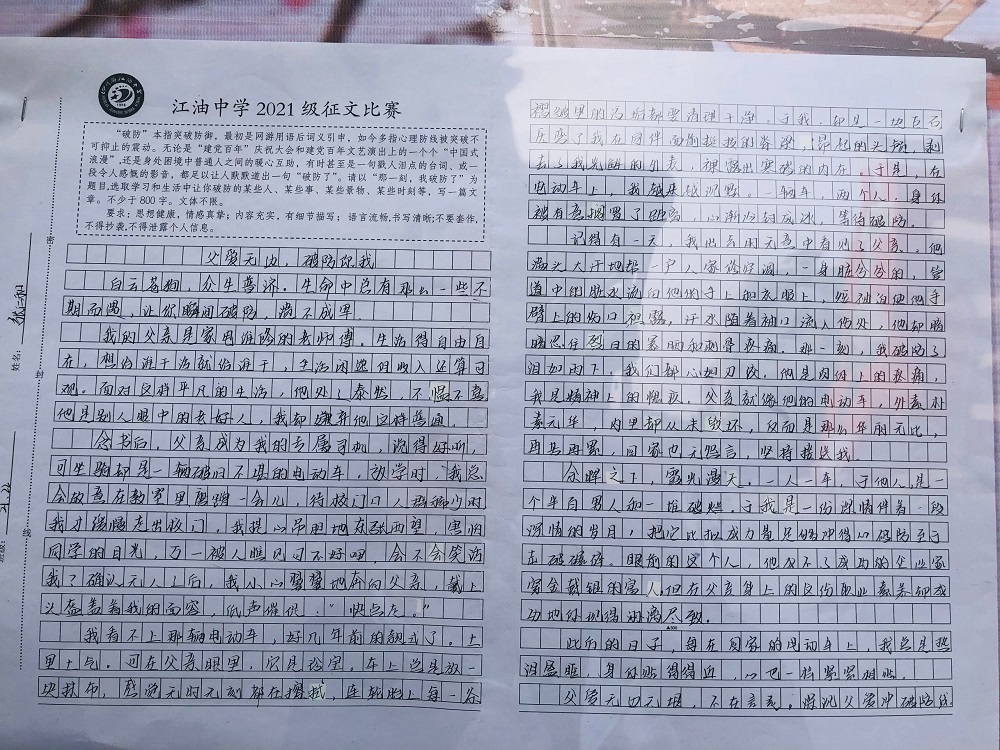 江油中学 2021 级征文比赛
“破防”本指突破防御,最初是网游用语后词义引申,如今多指心理防线被突破不
可抑止的震动。无论是“建党百年”庆祝大会和建党百年文艺演出上的一个个“中国式
浪漫”,还是身处困境中普通人之间的暖心互助,有时甚至是一句戳人泪点的台词、或一
段令人感慨的影音,都足以让人默默道出一句“破防了”。请以“那一刻,我破防了”为
题目,选取学习和生活中让你破防的某些人、某些事、某些景物、某些时刻等,写一篇文
章。不少于 800 字。文体不限。
要求:思想健康,情感真挚;内容充实,有细节描写;语言流畅,书写清晰;不要套作,
不得抄袭,不得泄露个人信息。
父爱无边,破防你我
白云苍狗,众生普济。生命中总有那么一些不
期而遇,让你瞬间破防,溃不成军。
我的父亲是家电维修的老师傅。生活得自由自
在,想治谁干活就治谁干,生活闲适但收入还算可
观。面对这样平凡的生活,他处之泰然,不愠不喜
他是别人眼中的老好人,我却嫌弃他这样普通。
念书后,父亲成为我的专属司机,说得好听,
可坐骑却是一辆破旧不堪的电动车。放学时,我总
会故意在教室里磨蹭一会儿,待校门口人群稀少时
我才缓慢走出校门,我提心吊胆地东张西望,害怕
同学的目光,万一被人瞧见可不好啊,会不会笑话
我?确认无人了后,我小心翼翼地奔向父亲,戴上
头盔盖着我的面容,低声催促:“快点走。”
我看不上那辆电动车,好几年前的款式了。土
里土气。可在父亲眼里,它是个宝。车上总是放一
块抹布,感觉无时无刻都在擦拭,连轮胎上每一个
褶皱里的污垢都要清理干净。于我,却是一块巨石
压弯了我在同伴面前挺拔的脊梁,昂起的头颅,剥
去了我光鲜的外表,裸露出寒碜的内在,于是,在
电动车上,我越来越沉默。一辆车,两个人,身体
被有意搁置了距离,心渐冷封成冰,等待破防。
记得有一天,我出去闲玩意中看见了父亲。他
满头大汗地帮一户人家修空调,一身脏兮兮的,管
道中的脏水流向他的手上和衣服上,
臂上的伤口积露,汗水随着袖口流入伤处,他却
忍住烈日的暴晒和刺骨疼痛。那一刻,我破防了
泪如雨下,我们都心如刀绞,他是肉体上的疼痛,
我是精神上的愧疚。父亲就像他的电动车,外表朴
素无华,内里却从未毁坏,反而是那么华丽无比,
再苦再累,回家也无怨言,坚持接送我。
余晖之下,霞光漫天。一人一车,于他人,是一
个半百男人和一堆破烂。于我是一份深情伴着一段
深情的岁月,把它比拟成力量足够冲得心破防至于
击破磕碎。眼前的这个人,他成不了成功的企业家
家金载银的富人,但在父亲身上的这份职业素养却成
功地体现得淋漓尽致。
此后的日子,每在回家的电动车上,我总是热
泪盈眶,身体贴得得近,心也一样紧紧相贴。
父爱无四无垠,不在言表。得沉父爱冲破防线
姓名:
班级:
密
封
线